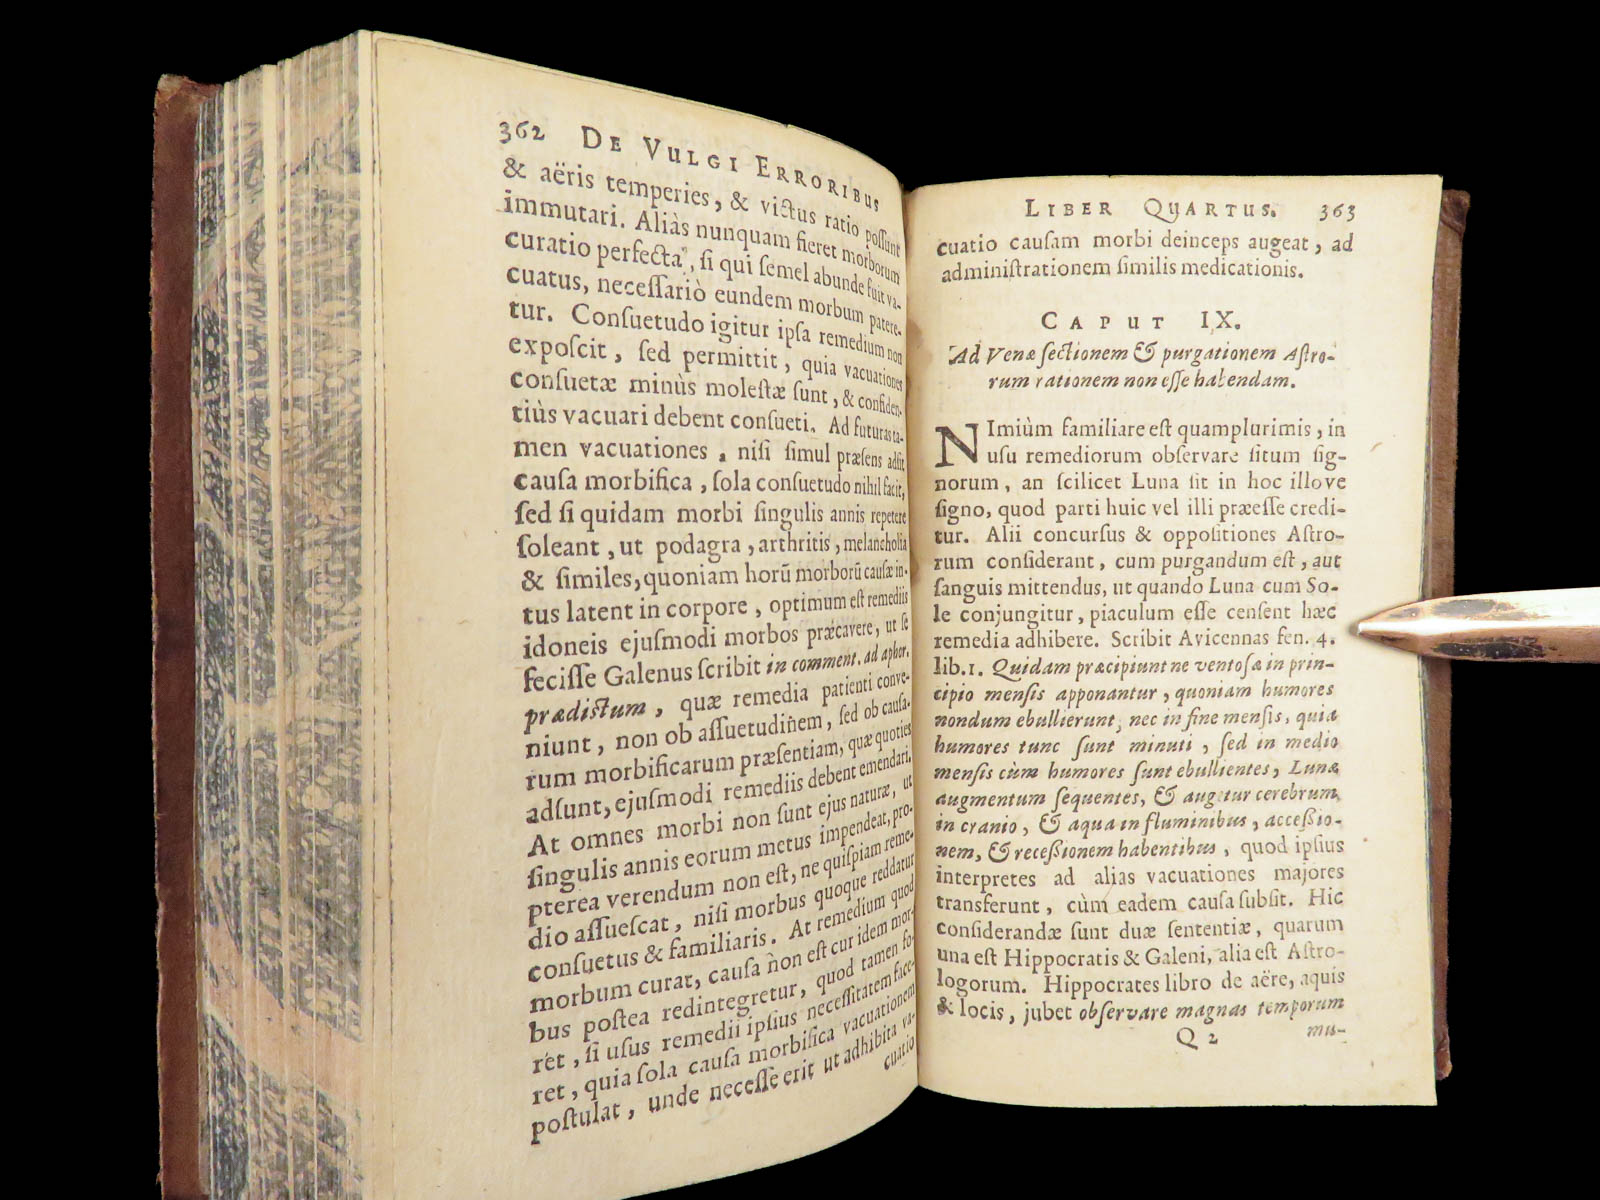 362 DE VULGI ERRORIBUS
& aëris temperies, & victus ratio poſſunt
immutari. Aliàs nunquam fieret morborum
curatio perfecta, ſi qui ſemel abunde fuit va-
cuatus, neceſſariò eundem morbum patere-
tur. Conſuetudo igitur ipſa remedium non
expoſcit, ſed permittit, quia vacuationes
conſuetæ minùs moleſtæ ſunt, & confiden-
tiùs vacuari debent conſueti. Ad futuras ta-
men vacuationes, niſi ſimul præſens adſit
cauſa morbifica, ſola conſuetudo nihil facit,
ſed ſi quidam morbi ſingulis annis repetere
ſoleant, ut podagra, arthritis, melancholia
& ſimiles, quoniam horū morborū cauſæ in-
tus latent in corpore, optimum eſt remediis
idoneis ejuſmodi morbos præcavere, ut ſe
feciſſe Galenus ſcribit in comment. ad aphor.
prædictum, quæ remedia patienti conve-
niunt, non ob aſſuetudinem, ſed ob cauſa-
rum morbificarum præſentiam, quæ quoties
adſunt, ejuſmodi remediis debent emendari.
At omnes morbi non ſunt ejus naturæ, ut
ſingulis annis eorum metus impendeat, pro-
pterea verendum non eſt, ne quiſpiam reme-
dio aſſueſcat, niſi morbus quoque reddatur
conſuetus & familiaris. At remedium quod
morbum curat, cauſa non eſt cur idem mor-
bus poſtea redintegretur, quod tamen fo-
ret, ſi uſus remedii ipſius neceſſitatem face-
ret, quia ſola cauſa morbifica vacuationem
poſtulat, unde neceſſe erit ut adhibita va-
cuatio
LIBER QUARTUS. 363
cuatio cauſam morbi deinceps augeat, ad
adminiſtrationem ſimilis medicationis.
CAPUT IX.
Ad Venæ ſectionem & purgationem Aſtro-
rum rationem non eſſe habendam.
NImiùm familiare eſt quamplurimis, in
uſu remediorum obſervare ſitum ſig-
norum, an ſcilicet Luna ſit in hoc illove
ſigno, quod parti huic vel illi præeſſe credi-
tur. Alii concurſus & oppoſitiones Aſtro-
rum conſiderant, cum purgandum eſt, aut
ſanguis mittendus, ut quando Luna cum So-
le conjungitur, piaculum eſſe cenſent hæc
remedia adhibere. Scribit Avicennas fen. 4.
lib. 1. Quidam præcipiunt ne ventoſæ in prin-
cipio menſis apponantur, quoniam humores
nondum ebullierunt, nec in fine menſis, quia
humores tunc ſunt minuti, ſed in medio
menſis cùm humores ſunt ebullientes, Lunæ
augmentum ſequentes, & augetur cerebrum
in cranio, & aqua in fluminibus, acceſſio-
nem, & receſſionem habentibus, quod ipſius
interpretes ad alias vacuationes majores
transferunt, cùm eadem cauſa ſubſit. Hic
conſiderandæ ſunt duæ ſententiæ, quarum
una eſt Hippocratis & Galeni, alia eſt Aſtro-
logorum. Hippocrates libro de aëre, aquis
& locis, jubet obſervare magnas temporum
Q 2 mu-